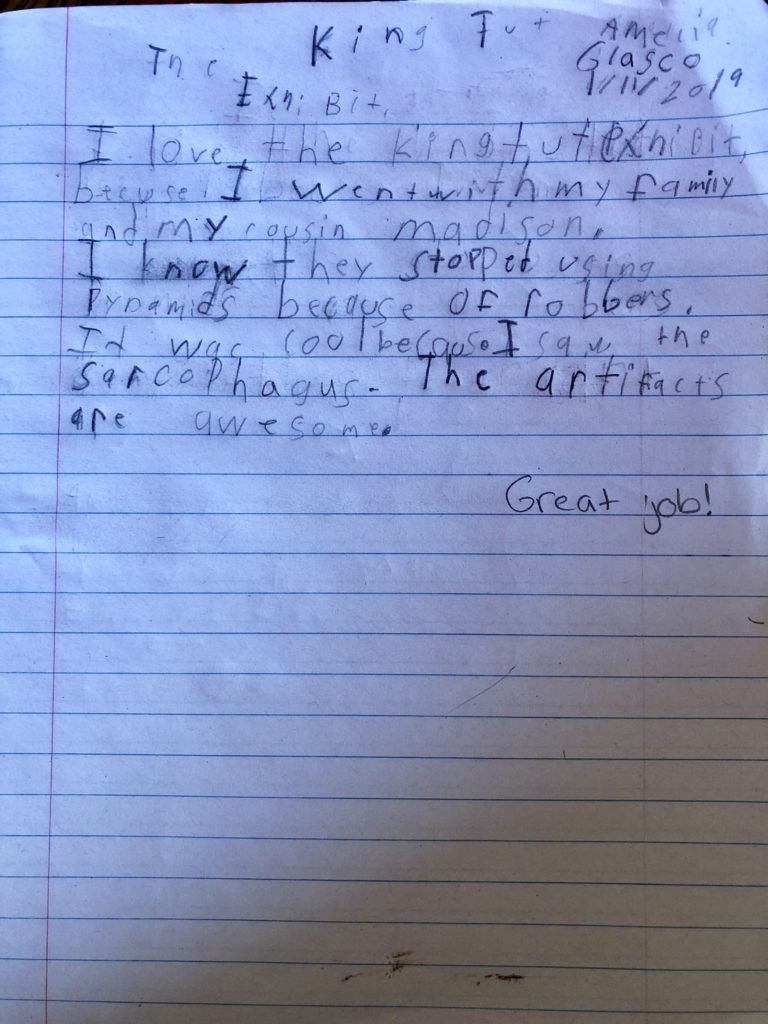 The King Tut Amelia
Glasco
Exhibit. 1/11/2019
I love the king tut Exhibit,
becuse I went with my family
and my cousin madison.
I know they stopped using
Pyramids because of robbers.
It was cool because I saw the
sarcophagus. The artifacts
are awesome.
Great job!